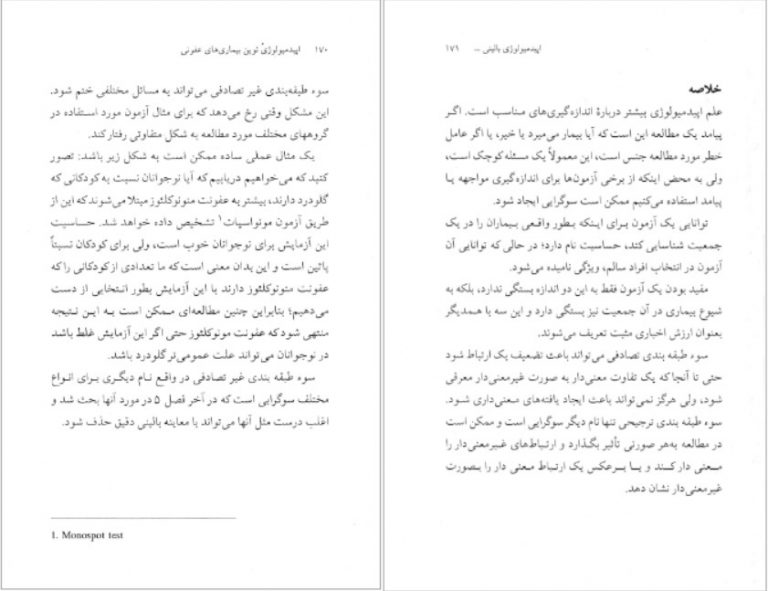 ۱۷۰ اپیدمیولوژی نوین بیماری‌های عفونی
سوء طبقه‌بندی غیر تصادفی می‌تواند به مسائل مختلفی ختم شود.
این مشکل وقتی رخ می‌دهد که برای مثال آزمون مورد استفاده در
گروههای مختلف مورد مطالعه به شکل متفاوتی رفتار کند.
یک مثال عملی ساده ممکن است به شکل زیر باشد: تصور
کنید که می‌خواهیم دریابیم که آیا نوجوانان نسبت به کودکانی که
گلودرد دارند، بیشتر به عفونت منونوکلئوز مبتلا می‌شوند که این از
طریق آزمون مونواسپات۱ تشخیص داده خواهد شد. حساسیت
این آزمایش برای نوجوانان خوب است، ولی برای کودکان نسبتاً
پائین است و این بدان معنی است که ما تعدادی از کودکانی را که
عفونت منونوکلئوز دارند با این آزمایش بطور انتخابی از دست
می‌دهیم؛ بنابراین چنین مطالعه‌ای ممکن است به این نتیجه
منتهی شود که عفونت مونوکلئوز حتی اگر این آزمایش غلط باشد
در نوجوانان می‌تواند علت عمومی‌تر گلودرد باشد.
سوء طبقه بندی غیر تصادفی در واقع نام دیگری برای انواع
مختلف سوگرایی است که در آخر فصل ۵ در مورد آنها بحث شد و
اغلب درست مثل آنها می‌تواند با معاینه بالینی دقیق حذف شود.
1. Monospot test
اپیدمیولوژی بالینی ... ۱۷۱
خلاصه
علم اپیدمیولوژی بیشتر دربارهٔ اندازه‌گیری‌های مناسب است. اگر
پیامد یک مطالعه این است که آیا بیمار می‌میرد یا خیر، یا اگر عامل
خطر مورد مطالعه جنس است، این معمولاً یک مسئله کوچک است،
ولی به محض اینکه از برخی آزمون‌ها برای اندازه‌گیری مواجهه یا
پیامد استفاده می‌کنیم ممکن است سوگرایی ایجاد شود.
توانایی یک آزمون برای اینکه بطور واقعی بیماران را در یک
جمعیت شناسایی کند، حساسیت نام دارد؛ در حالی که توانایی آن
آزمون در انتخاب افراد سالم، ویژگی نامیده می‌شود.
مفید بودن یک آزمون فقط به این دو اندازه بستگی ندارد، بلکه به
شیوع بیماری در آن جمعیت نیز بستگی دارد و این سه با همدیگر
بعنوان ارزش اخباری مثبت تعریف می‌شوند.
سوء طبقه بندی تصادفی می‌تواند باعث تضعیف یک ارتباط شود
حتی تا آنجا که یک تفاوت معنی‌دار به صورت غیرمعنی‌دار معرفی
شود، ولی هرگز نمی‌تواند باعث ایجاد یافته‌های معنی‌داری شود.
سوء طبقه بندی ترجیحی تنها نام دیگر سوگرایی است و ممکن است
در مطالعه به‌هر صورتی تأثیر بگذارد و ارتباط‌های غیرمعنی‌دار را
معنی دار کند و یا برعکس یک ارتباط معنی دار را بصورت
غیرمعنی‌دار نشان دهد.